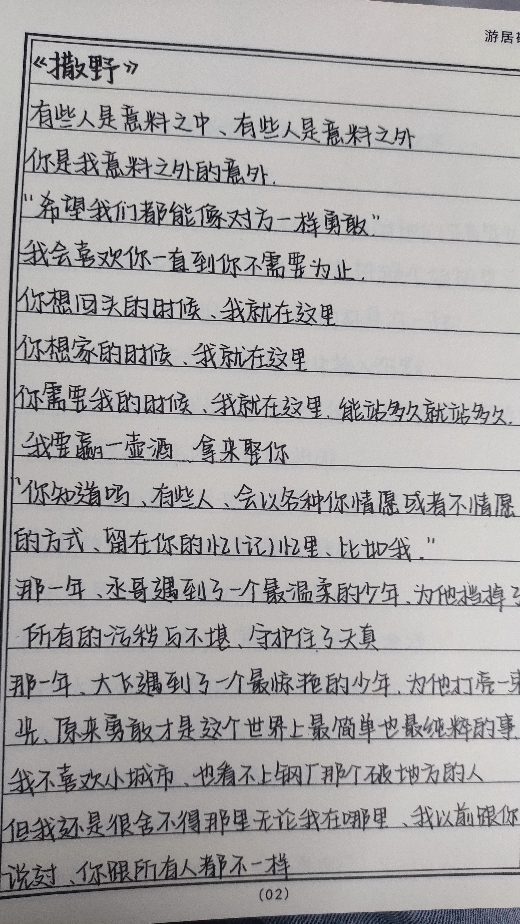 游居
《撒野》
有些人是意料之中、有些人是意料之外
你是我意料之外的意外.
"希望我们都能像对方一样勇敢."
我会喜欢你一直到你不需要为止.
你想回头的时候、我就在这里
你想家的时候、我就在这里
你需要我的时候、我就在这里.能站多久就站多久.
我要赢一壶酒 拿来娶你
"你知道吗、有些人、会以各种你情愿或者不情愿
的方式、留在你的忆(记)忆里、比如我."
那一年、丞哥遇到了一个最温柔的少年、为他挡掉了
所有的污秽与不堪、守护住了天真
那一年、大飞遇到了一个最惊艳的少年、为他打亮一束
光、原来勇敢才是这个世界上最简单也最纯粹的事
我不喜欢小城市、也看不上钢厂那个破地方的人
但我还是很舍不得那里无论我在哪里、我以前跟你
说过、你跟所有人都不一样
(02)